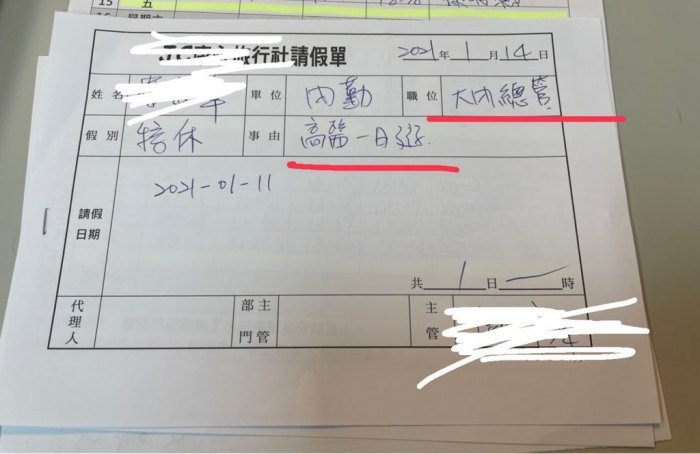 15 五
16 星期六
旅行社請假單 2021年1月14日
姓名 單位 內勤 職位 大內總管
假別 特休 事由 高醫一日遊.
2021-01-11
請假日期
共 1 日 — 時
代理人 部門主管 主管